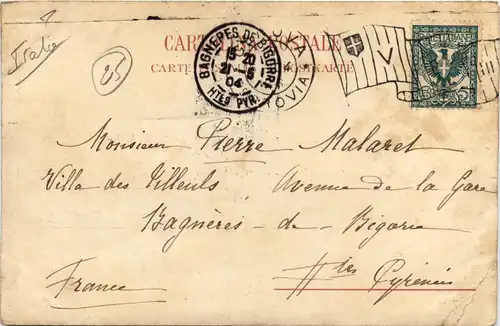 Italia
25
CARTE POSTALE
CARTE POSTKARTE
BAGNERES DE BIGORRE
15 20
21 - 5
04
HTES PYR.
V
Monsieur Pierre Malaret
Villa des Tilleuls Avenue de la Gare
Bagnères-de-Bigorre
France Htes Pyrénées